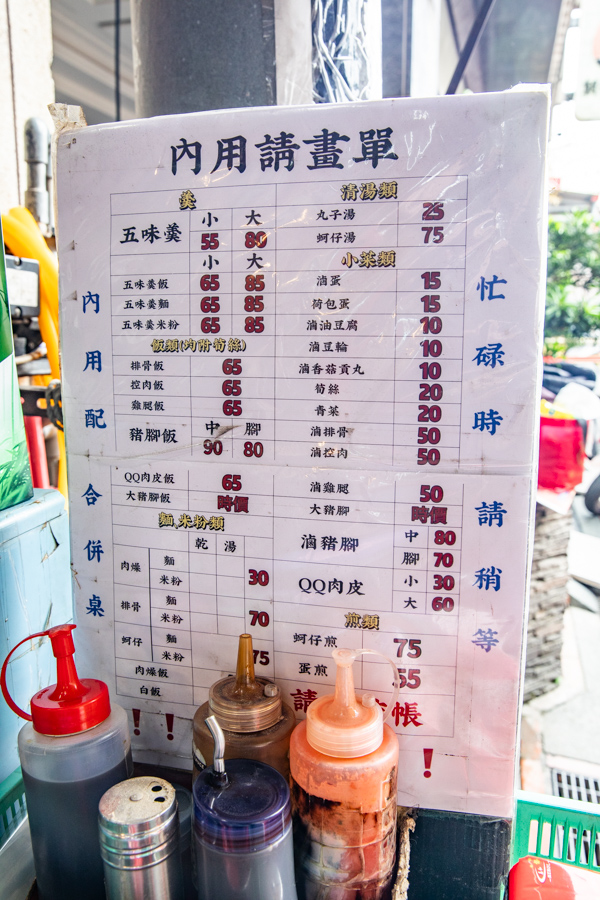 內用請畫單
羹
五味羹 小 大
55 80
小 大
五味羹飯 65 85
五味羹麵 65 85
五味羹米粉 65 85
飯類(均附筍絲)
排骨飯 65
控肉飯 65
雞腿飯 65
豬腳飯 中 腳
90 80
QQ肉皮飯 65
大豬腳飯 時價
麵、米粉類
乾 湯
肉燥 麵
米粉 30
排骨 麵
米粉 70
蚵仔 麵
米粉 75
肉燥飯
白飯
清湯類
丸子湯 25
蚵仔湯 75
小菜類
滷蛋 15
荷包蛋 15
滷油豆腐 10
滷豆輪 10
滷香菇貢丸 10
筍絲 20
青菜 20
滷排骨 50
滷控肉 50
滷雞腿 50
大豬腳 時價
滷豬腳 中 80
腳 70
QQ肉皮 小 30
大 60
煎類
蚵仔煎 75
蛋煎 55
請 帳
! ! !
內用配合併桌
忙碌時請稍等